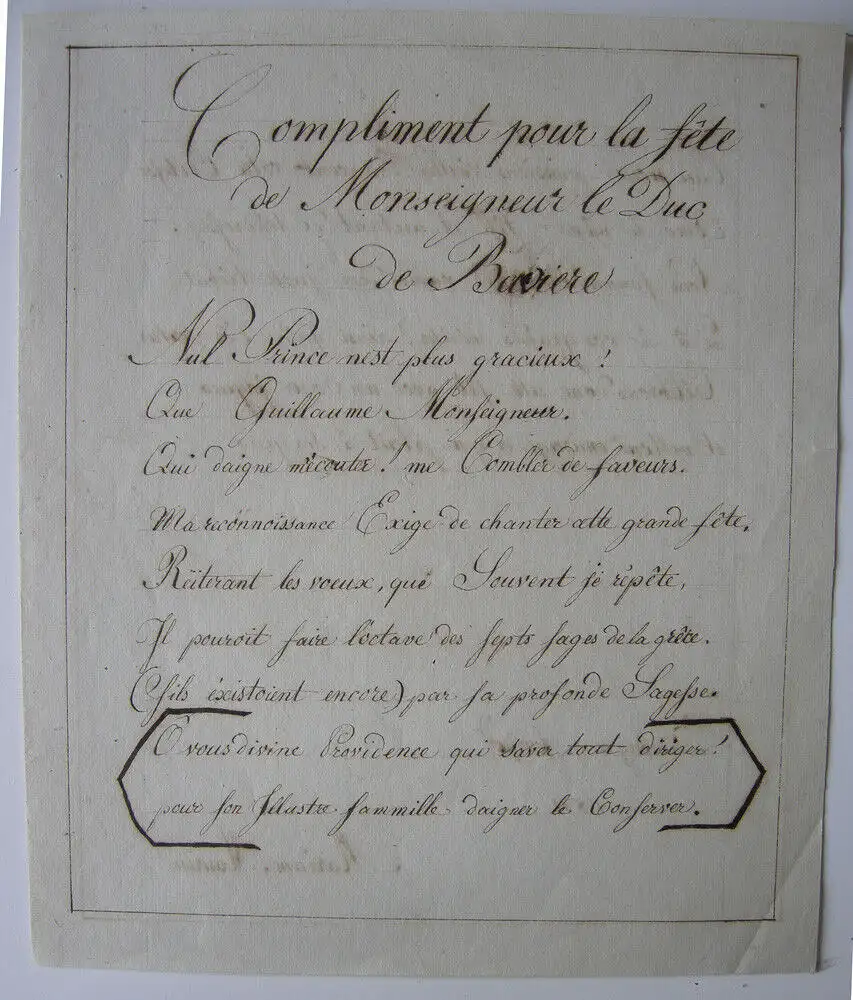 Compliment pour la fête
de Monseigneur le Duc
de Baviere
Nul Prince n'est plus gracieux !
Que Guillaume Monseigneur.
Qui daigne m'écouter ! me Combler de faveurs.
Ma reconnoissance Exige de chanter cette grande fête.
Réiterant les voeux, que Souvent je répête,
Il pouroit faire l'octave des septs sages de la grêce.
(s'ils éxistoient encore) par sa profonde Sagesse.
Ô vous divine Providence qui saver tout diriger !
pour son Illustre fammille daigner le Conserver.